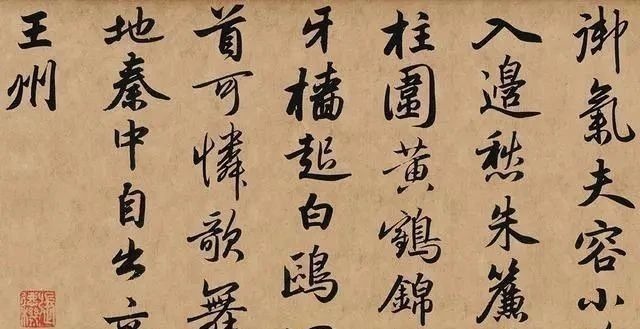 御氣夫容小
入邊愁朱簾
柱圍黃鶴錦
牙檣起白鷗
首可憐歌舞
地秦中自古
王州